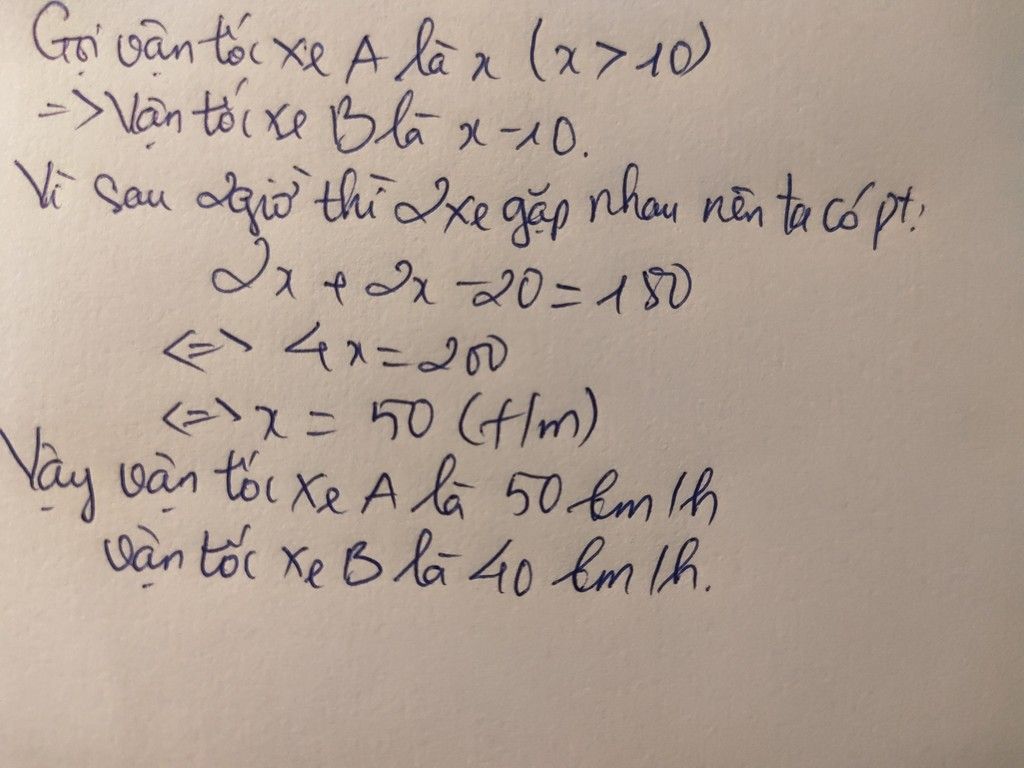 Gọi vận tốc xe A là x (x > 10)
=> Vận tốc xe B là x - 10.
Vì sau 2 giờ thì 2 xe gặp nhau nên ta có pt:
2x + 2x - 20 = 180
<=> 4x = 200
<=> x = 50 (t/m)
Vậy vận tốc xe A là 50 km/h
vận tốc xe B là 40 km/h.